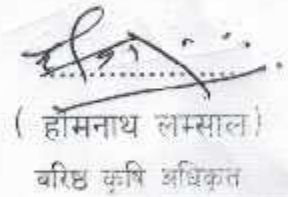 ( होमनाथ लम्साल )
बरिष्ठ कृषि अधिकृत